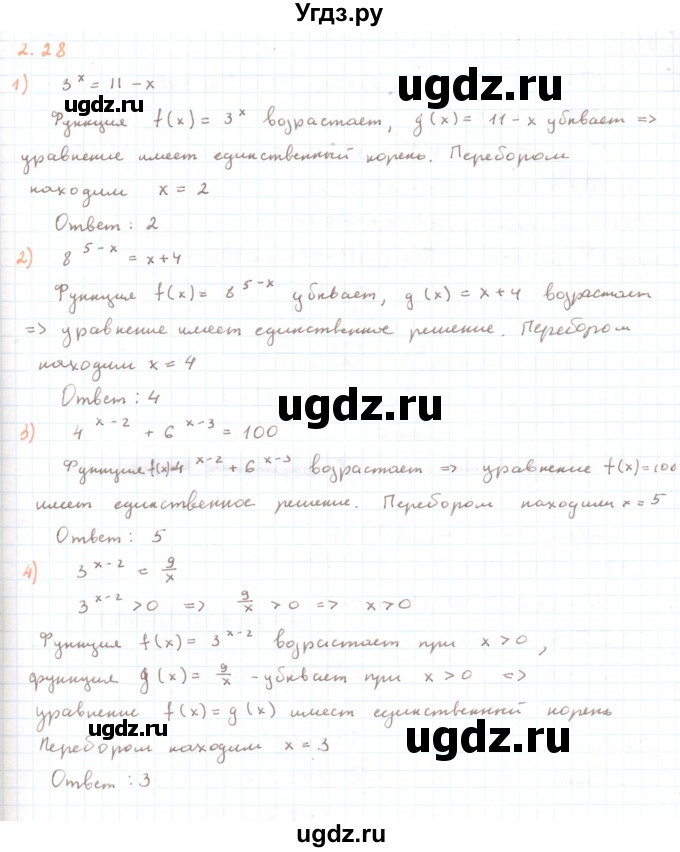 Угдз.ру
2.28
1) 3^x = 11 - x
Функция f(x) = 3^x возрастает, g(x) = 11 - x убывает =>
уравнение имеет единственный корень. Перебором
находим x = 2
Ответ: 2
2) 8^(5-x) = x+4
Функция f(x) = 8^(5-x) убывает, g(x) = x+4 возрастает
=> уравнение имеет единственное решение. Перебором
находим x = 4
Ответ: 4
3) 4^(x-2) + 6^(x-3) = 100
Функция f(x)=4^(x-2) + 6^(x-3) возрастает => уравнение f(x)=100
имеет единственное решение. Перебором находим x = 5
Ответ: 5
4) 3^(x-2) = 9/x
3^(x-2) > 0 => 9/x > 0 => x > 0
Функция f(x) = 3^(x-2) возрастает при x > 0,
функция g(x) = 9/x - убывает при x > 0 =>
уравнение f(x) = g(x) имеет единственный корень
Перебором находим x = 3
Ответ: 3
ugdz.ru
ugdz.ru
ugdz.ru
ugdz.ru
ugdz.ru
ugdz.ru
ugdz.ru
ugdz.ru